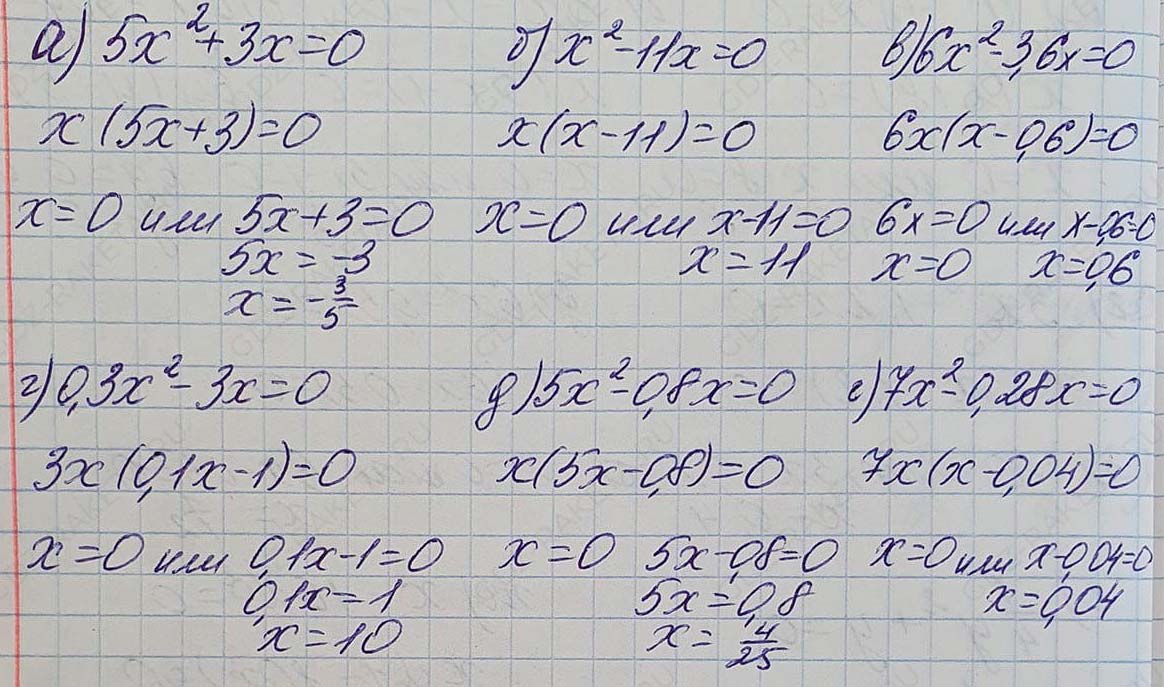 а) 5x²+3x=0 б) x²-11x=0 в) 6x²-3,6x=0
x(5x+3)=0 x(x-11)=0 6x(x-0,6)=0
x=0 или 5x+3=0 x=0 или x-11=0 6x=0 или x-0,6=0
5x=-3 x=11 x=0 x=0,6
x=-3/5
г) 0,3x²-3x=0 д) 5x²-0,8x=0 е) 7x²-0,28x=0
3x(0,1x-1)=0 x(5x-0,8)=0 7x(x-0,04)=0
x=0 или 0,1x-1=0 x=0 5x-0,8=0 x=0 или x-0,04=0
0,1x=1 5x=0,8 x=0,04
x=10 x=4/25